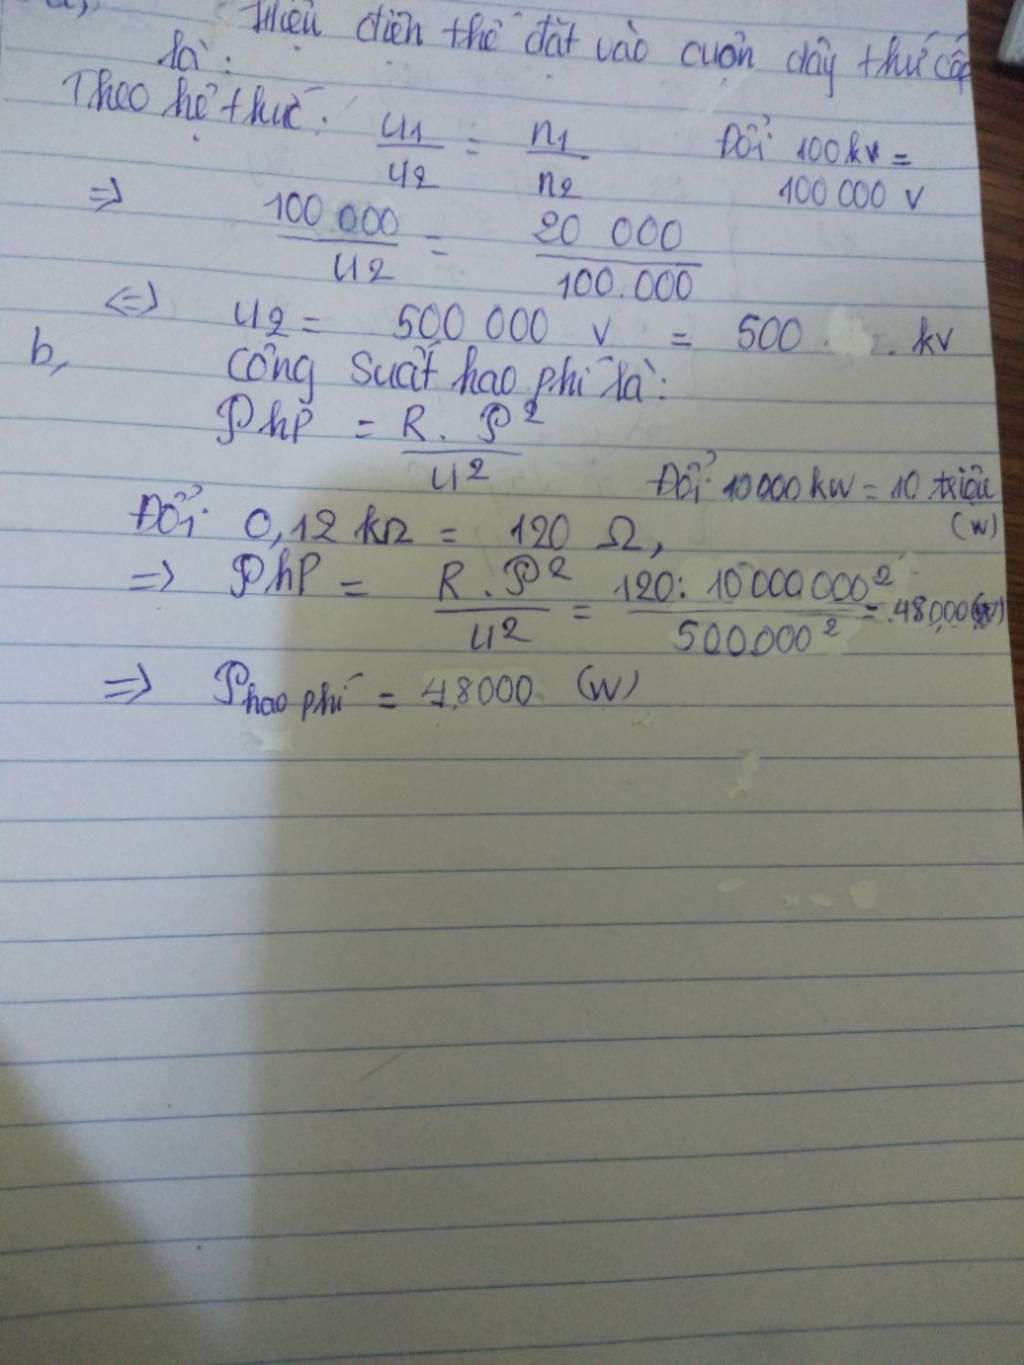 a,
Hiệu điện thế đặt vào cuộn dây thứ cấp
là:
Theo hệ thức: u1/u2 = n1/n2 Đổi 100kv =
100 000 v
=> 100 000/u2 = 20 000/100.000
<=> u2 = 500 000 v = 500 kv
b, Công suất hao phí là:
Php = R. P²/u²
Đổi 10000kw = 10 triệu
(w)
Đổi 0,12 kΩ = 120 Ω,
=> Php = R.P²/u² = 120: 10 000 000²/500.000² = 48000(w)
=> Phao phí = 48000 (w)